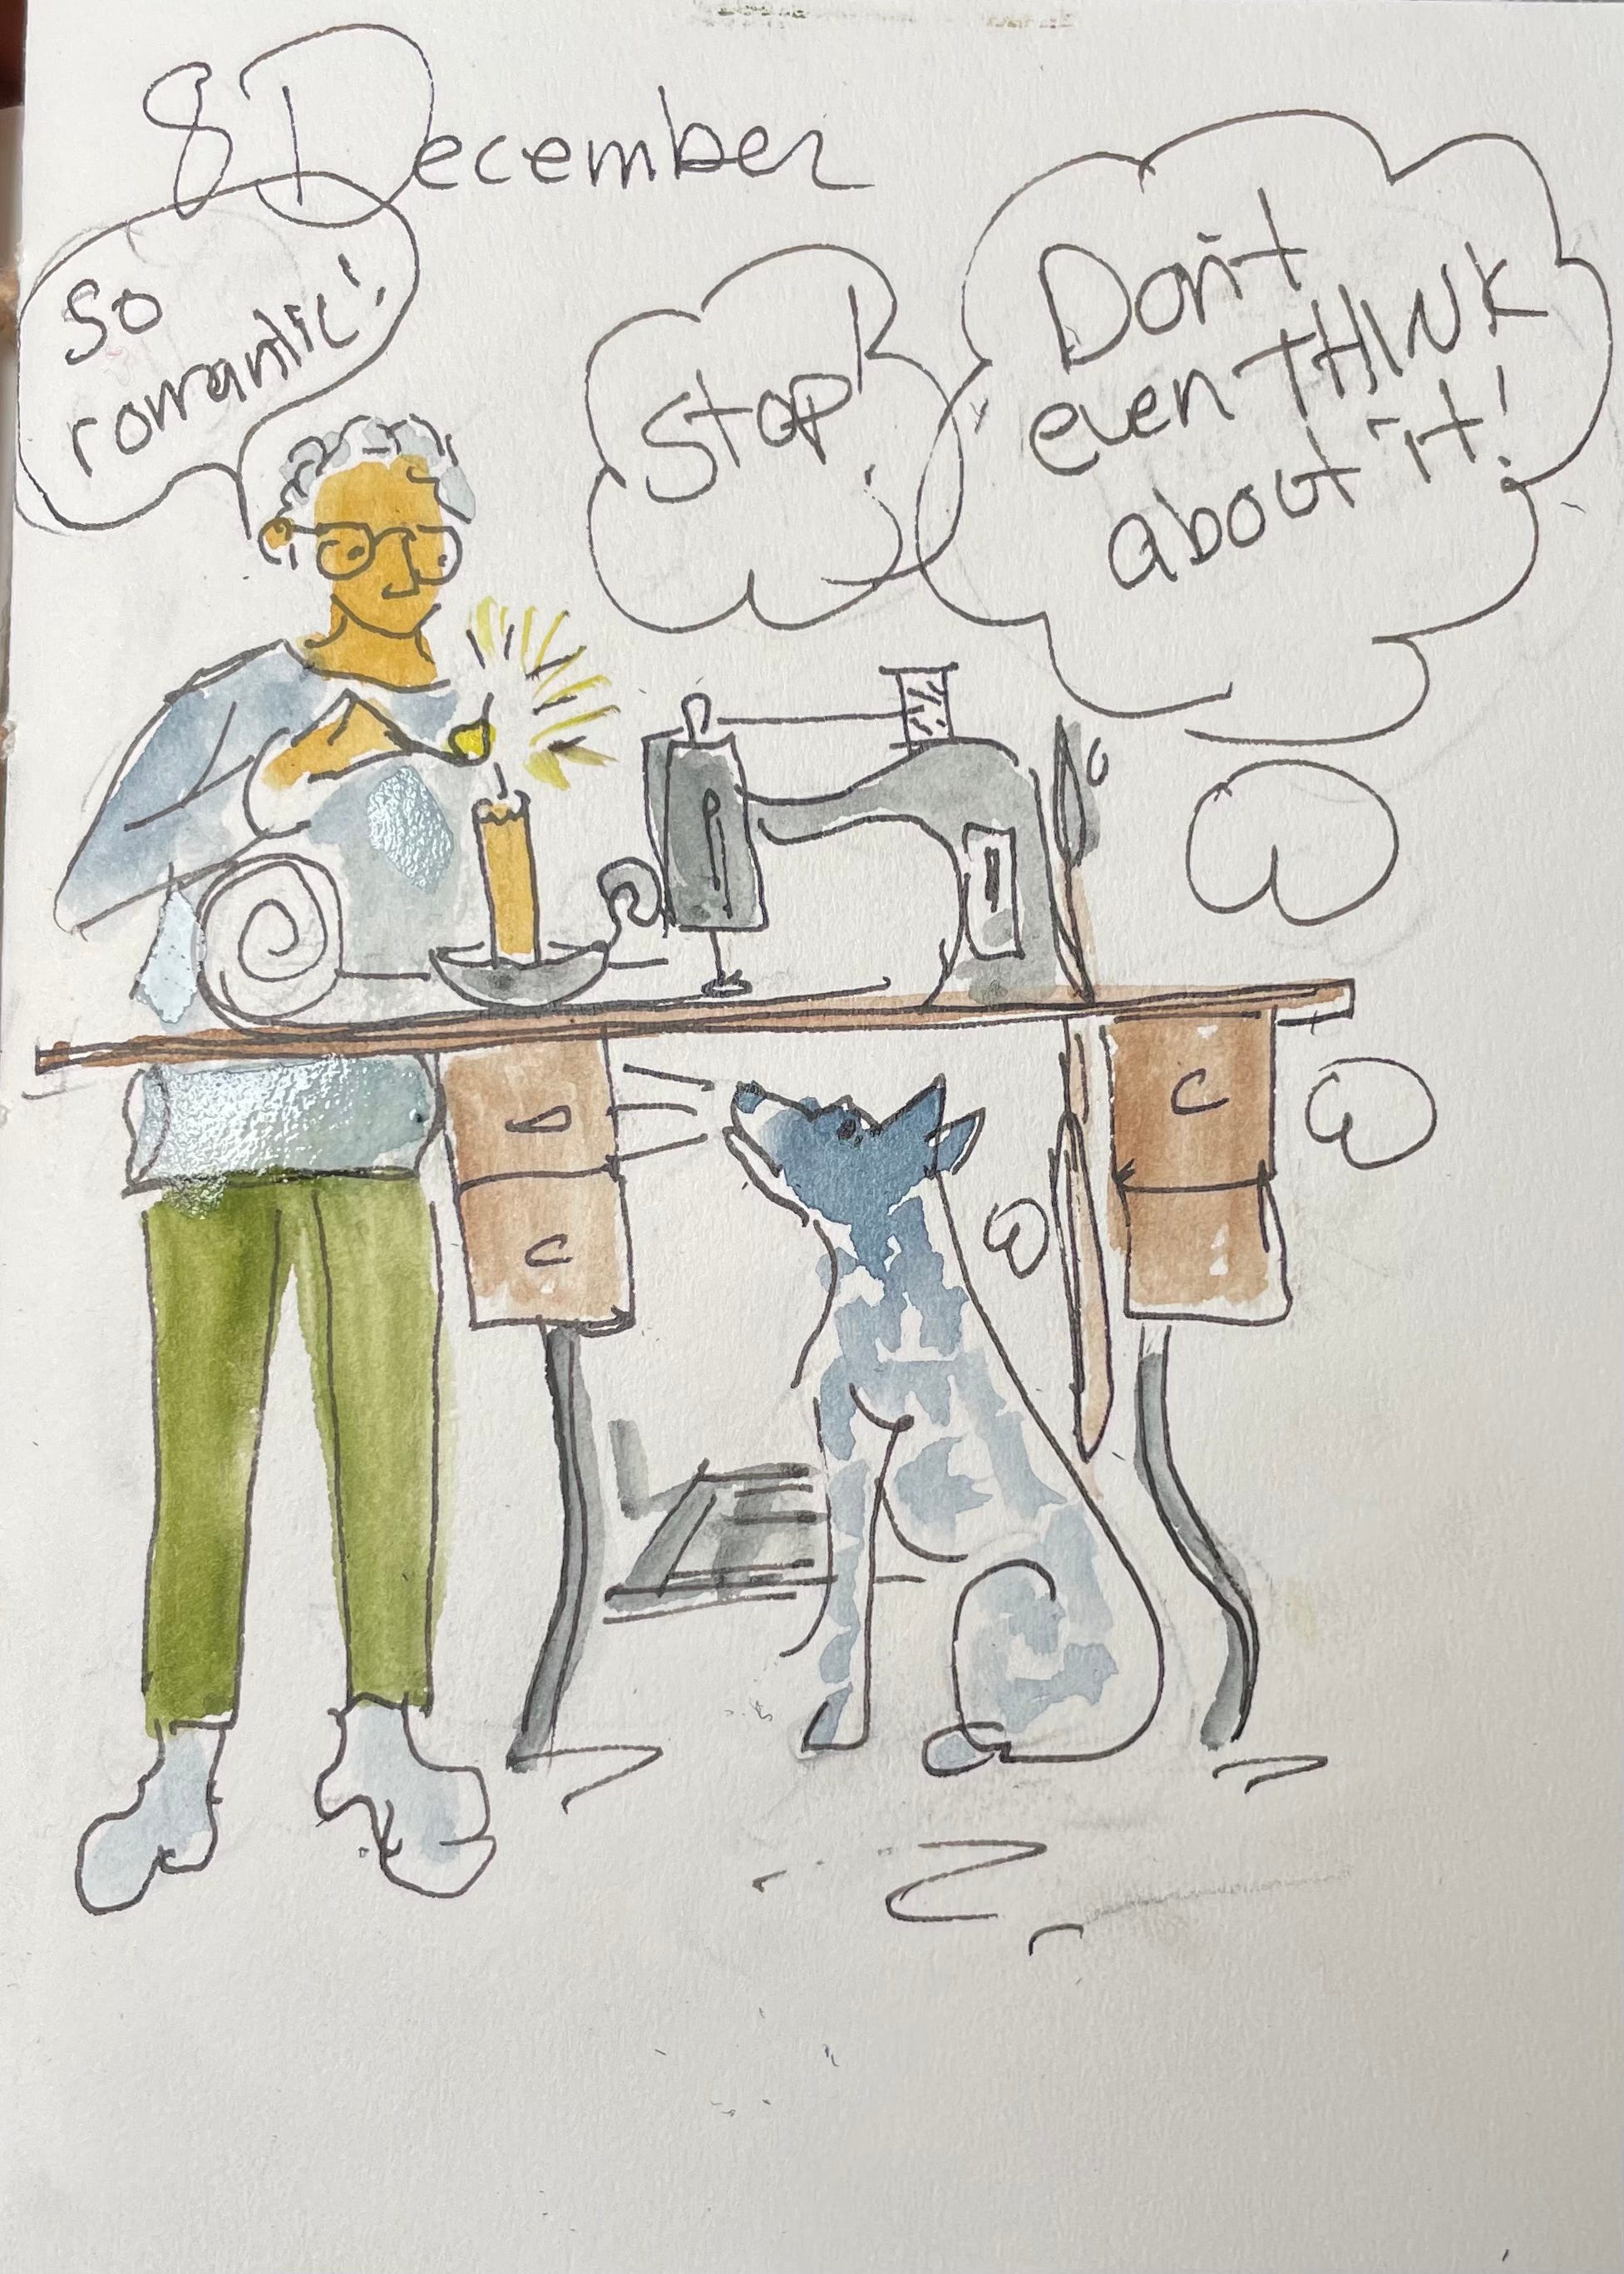 8 December
So
romantic!
Stop!
Don't
even THINK
about it!